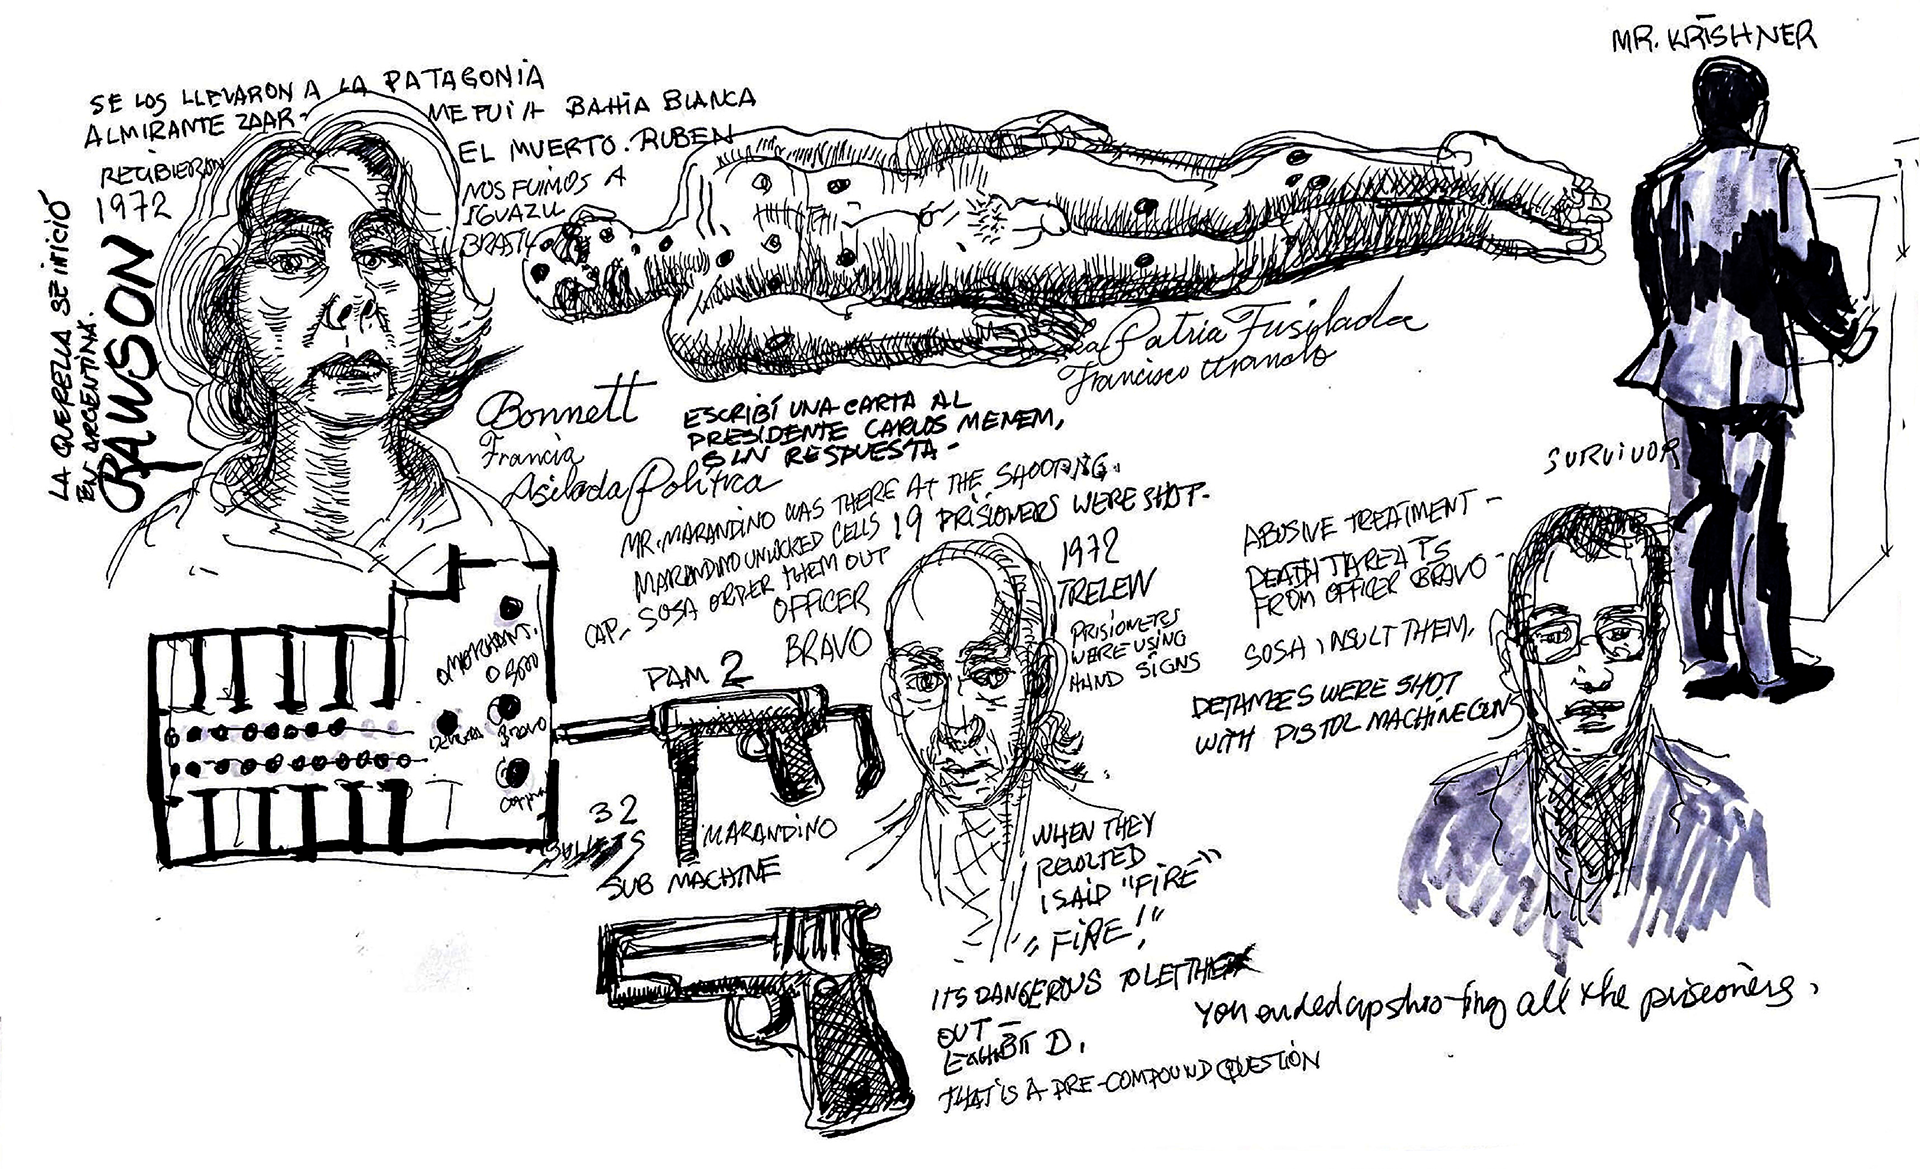 MR. KRISHNER
SE LOS LLEVARON A LA PATAGONIA
ALMIRANTE ZAAR-
RECIBIERON
1972
ME FUI A BAHIA BLANCA
EL MUERTO. RUBEN
NOS FUIMOS A
IGUAZU
BRASIL
LA QUERELLA SE INICIÓ
EN ARGENTINA.
RAWSON
La Patria Fusilada
Francisco Urondo
Bonnett
Francia
Asilada Política
ESCRIBÍ UNA CARTA AL
PRESIDENTE CARLOS MENEM,
SIN RESPUESTA-
MR. MARANDINO WAS THERE AT THE SHOOTING.
MARANDINO UNLOCKED CELLS 19 PRISIONERS WERE SHOT-
CAP. SOSA ORDER THEM OUT
OFFICER
BRAVO
1972
TRELEW
PRISIONERS
WERE USING
HAND SIGNS
SURVIVOR
ABUSIVE TREATMENT-
DEATH TAREATS
FROM OFFICER BRAVO-
SOSA INSULT THEM,
DETAINEES WERE SHOT
WITH PISTOL MACHINEGUNS
BRAVO
PAM 2
32
BULLETS
MARANDINO
SUB MACHINE
WHEN THEY
REVOLTED
I SAID "FIRE"
"FIRE!"
ITS DANGEROUS TO LET THEM
OUT-
EXHIBIT D.
THAT IS A PRE-COMPOUND QUESTION
You ended up shooting all the prisioners.